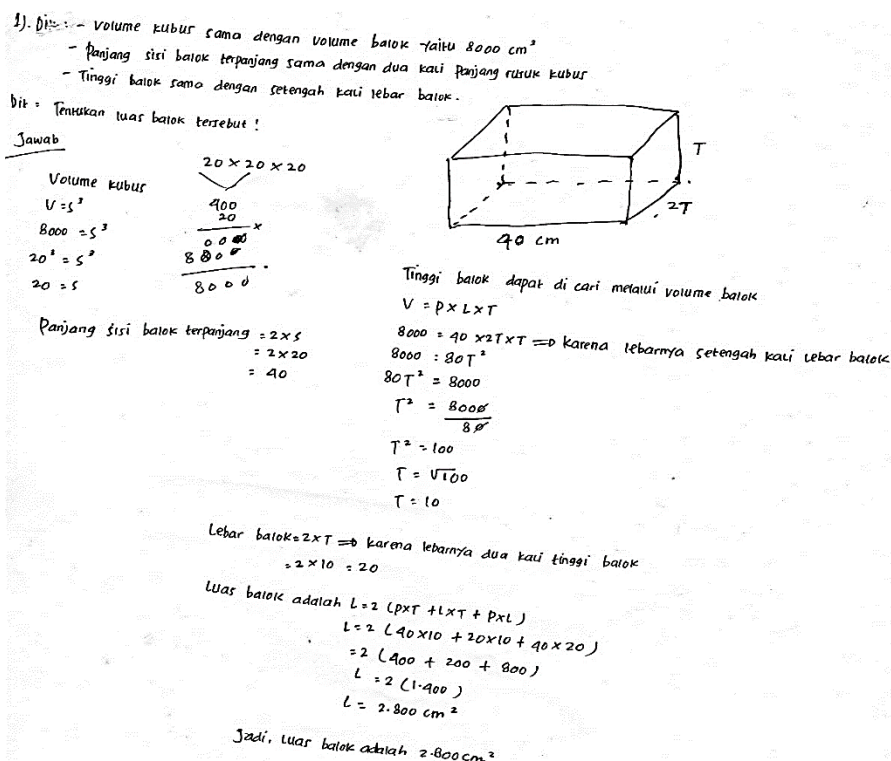 1). Dit : - Volume kubus sama dengan volume balok yaitu 8000 cm³
- Panjang sisi balok terpanjang sama dengan dua kali panjang rusuk kubus
- Tinggi balok sama dengan setengah kali lebar balok.
Dit : Tentukan luas balok tersebut !
Jawab
Volume kubus
V = s³
8000 = s³
20³ = s³
20 = s
20 × 20 × 20
400
20 ×
0000
800
8000
Panjang sisi balok terpanjang = 2 × s
= 2 × 20
= 40
T
2T
40 cm
Tinggi balok dapat di cari melalui volume balok
V = P × L × T
8000 = 40 × 2T × T ⇒ karena lebarnya setengah kali lebar balok
8000 : 80T²
80T² = 8000
T² = 8000
80
T² = 100
T = √100
T = 10
Lebar balok = 2 × T ⇒ karena lebarnya dua kali tinggi balok
= 2 × 10 = 20
Luas balok adalah L = 2 (P×T + L×T + P×L)
L = 2 (40×10 + 20×10 + 40×20)
= 2 (400 + 200 + 800)
L = 2 (1.400)
L = 2.800 cm²
Jadi, luas balok adalah 2.800 cm²